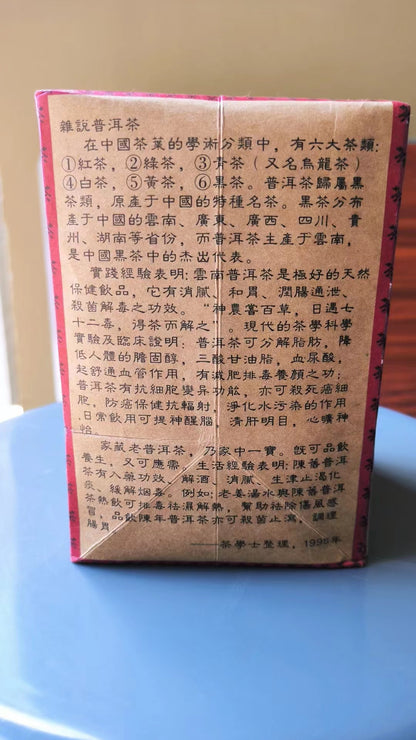 雜説普洱茶
在中國茶葉的學術分類中，有六大茶類：
①紅茶，②綠茶，③青茶（又名烏龍茶）
④白茶，⑤黃茶，⑥黑茶。普洱茶歸屬黑
茶類，原產于中國的特種名茶。黑茶分布
產于中國的雲南、廣東、廣西、四川、貴
州、湖南等省份，而普洱茶主產于雲南，
是中國黑茶中的杰出代表。
實踐經驗表明：雲南普洱茶是極好的天然
保健飲品，它有消膩、和胃、潤腸通泄、
殺菌解毒之功效。“神農嘗百草，日遇七
十二毒，得茶而解之”。現代的茶學科學
實驗及臨床說明：普洱茶可分解脂肪，降
低人體的膽固醇，三酸甘油脂，血尿酸，
起舒通血管作用，有減肥排毒養顏之功；
普洱茶有抗細胞變异功能，亦可殺死癌細
胞，防癌保健抗輻射，淨化水污染的作用
.日常飲用可提神醒腦，清肝明目，心曠神
怡。
家藏老普洱茶，乃家中一寶。既可品飲
養生，又可應需，生活經驗表明：陳舊普洱
茶有入藥功效，解酒、消膩、生津止渴化
痰、緩解烟毒。例如：老姜湯水與陳舊普洱
茶熱飲可排毒祛濕解熱，幫助祛除傷風感
冒，品飲陳年普洱茶亦可殺菌止瀉、調理
腸胃
——茶學士整理，1998年